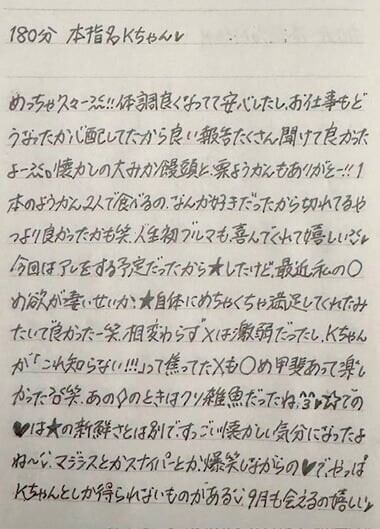 180分 本指名Kちゃん♥
めっちゃ久々〜!!体調良くなってて安心したし、お仕事もど
うなったか心配してたから良い報告たくさん聞けて良かった
よー。懐かしの大みか饅頭と、栗ようかんもありがとー!!1
本のようかん2人で食べるの、なんか好きだったから切れてるや
つより良かったかも笑 人生初ブルマも喜んでくれて嬉しい
今回はアレをする予定だったから★したけど、最近私の○
め欲が凄いせいか、★自体にめちゃくちゃ満足してくれたみ
たいで良かった一笑 相変わらず×は激弱だったし、Kちゃん
が「これ知らない!!!」って焦ってた×も○め甲斐あって楽し
かった笑 あの◇のときはクソ雑魚だったね ♥☆での
♥は★の新鮮さとは別で、すっごい懐かしい気分になったよ
ね〜 マジラスとかスナイパーとか、爆笑しながらの♥で、やっぱ
Kちゃんとしか得られないものがある 9月も会えるの嬉しい♥